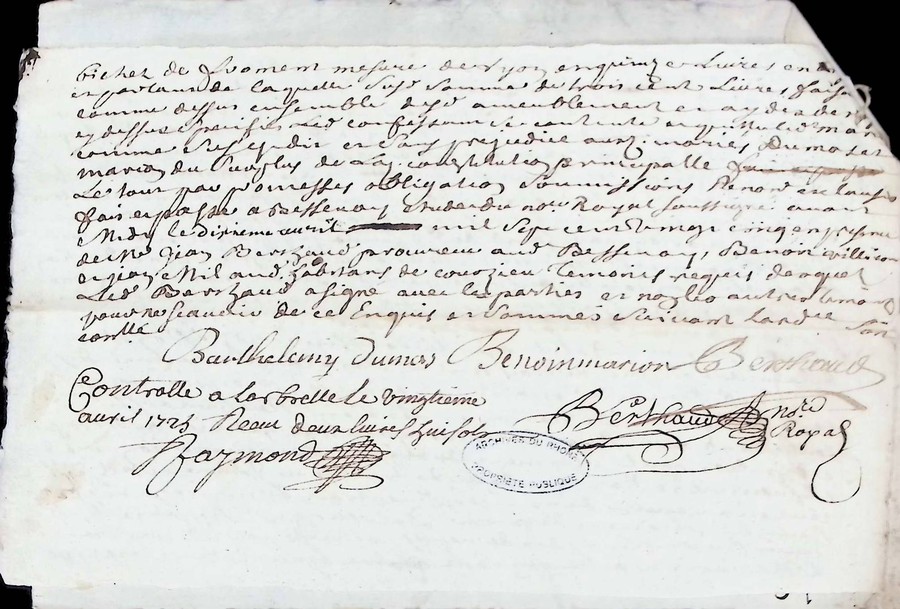 bichet de froment mesure de Lyon en quinze Livres en
et partant de laquelle susd somme de trois cent Livres, fais
comme dessus ensemble desd ameublement
cy dessus specifies Led confessant se contente
comme et sans prejudice auxd mariés, Dumas et
marion du surplus de La constitution principalle
Le tout par promesses obligation soumissions Renon et clauses
fait et passé a Bessenay Etude du no.re Royal soussigné avant
Midy le dixieme avril mil sept cent vingt cinq en presence
de M.e Jean Berthaud procureur aud Bessenay, Benoit
et jean habitans de courzieu temoins requis desquels
Led Berthaud a signé avec les parties et non les autres temoins
pour ne scavoir de ce Enquis et sommés suivant Lord.ce
contlé
Barthelemy Dumas Benoin marion Berthaud
Controlle a Larbrelle le vingtieme
avril 1725 Receu deux livres huit sols
Berthaud no.re
Royal
Raymond
ARCHIVES DU RHÔNE
PROPRIÉTÉ PUBLIQUE